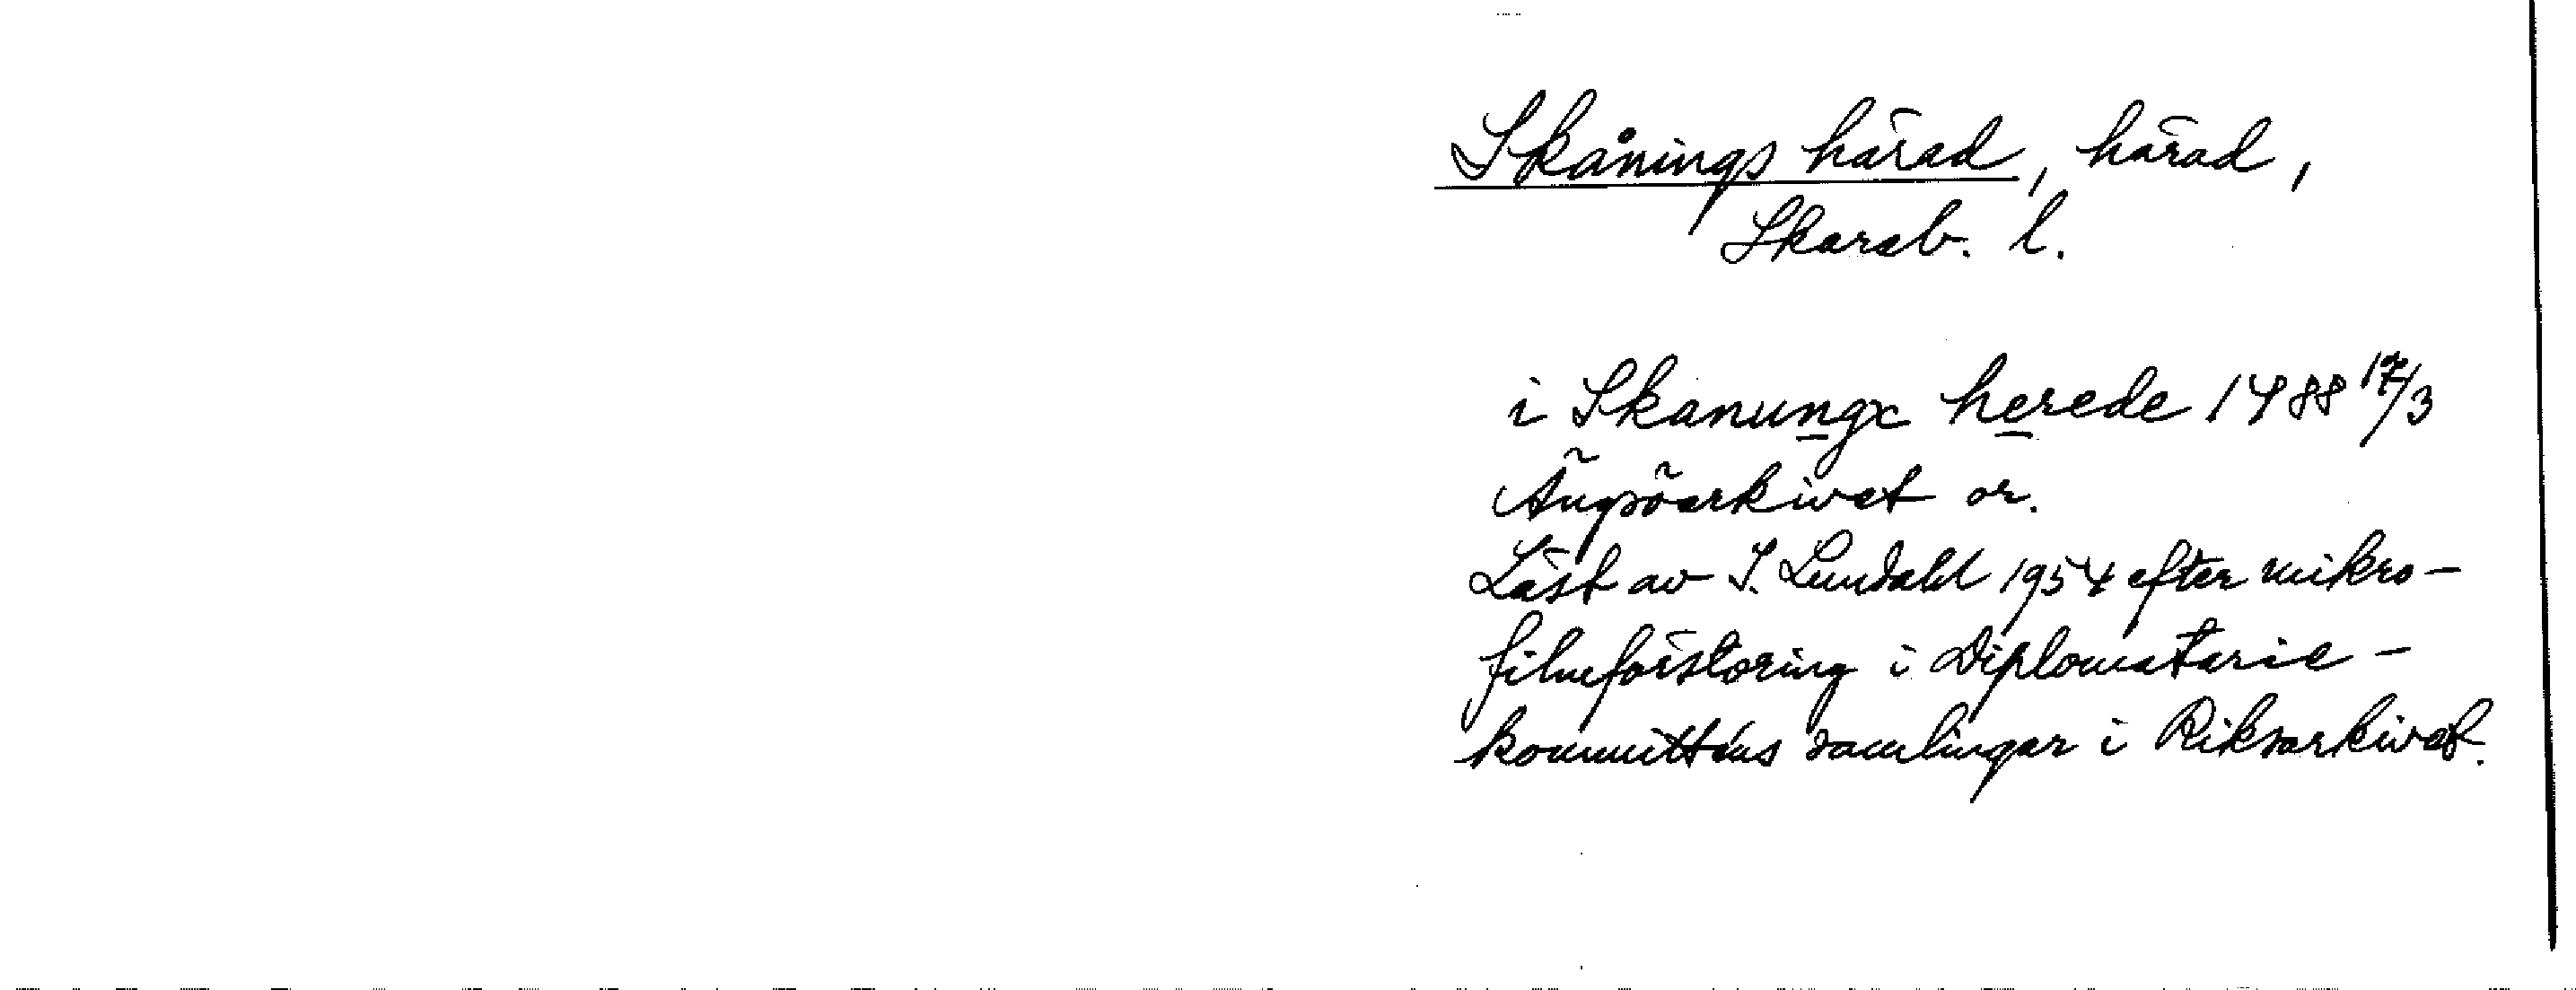 Skånings härad, härad,
Skarab. l.
i Skanungx herede 1488 17/3
Ängsöarkivet or.
Läst av I. Lundahl 1954 efter mikro-
filmförstoring i Diplomatarie-
kommitténs samlingar i Riksarkivet.